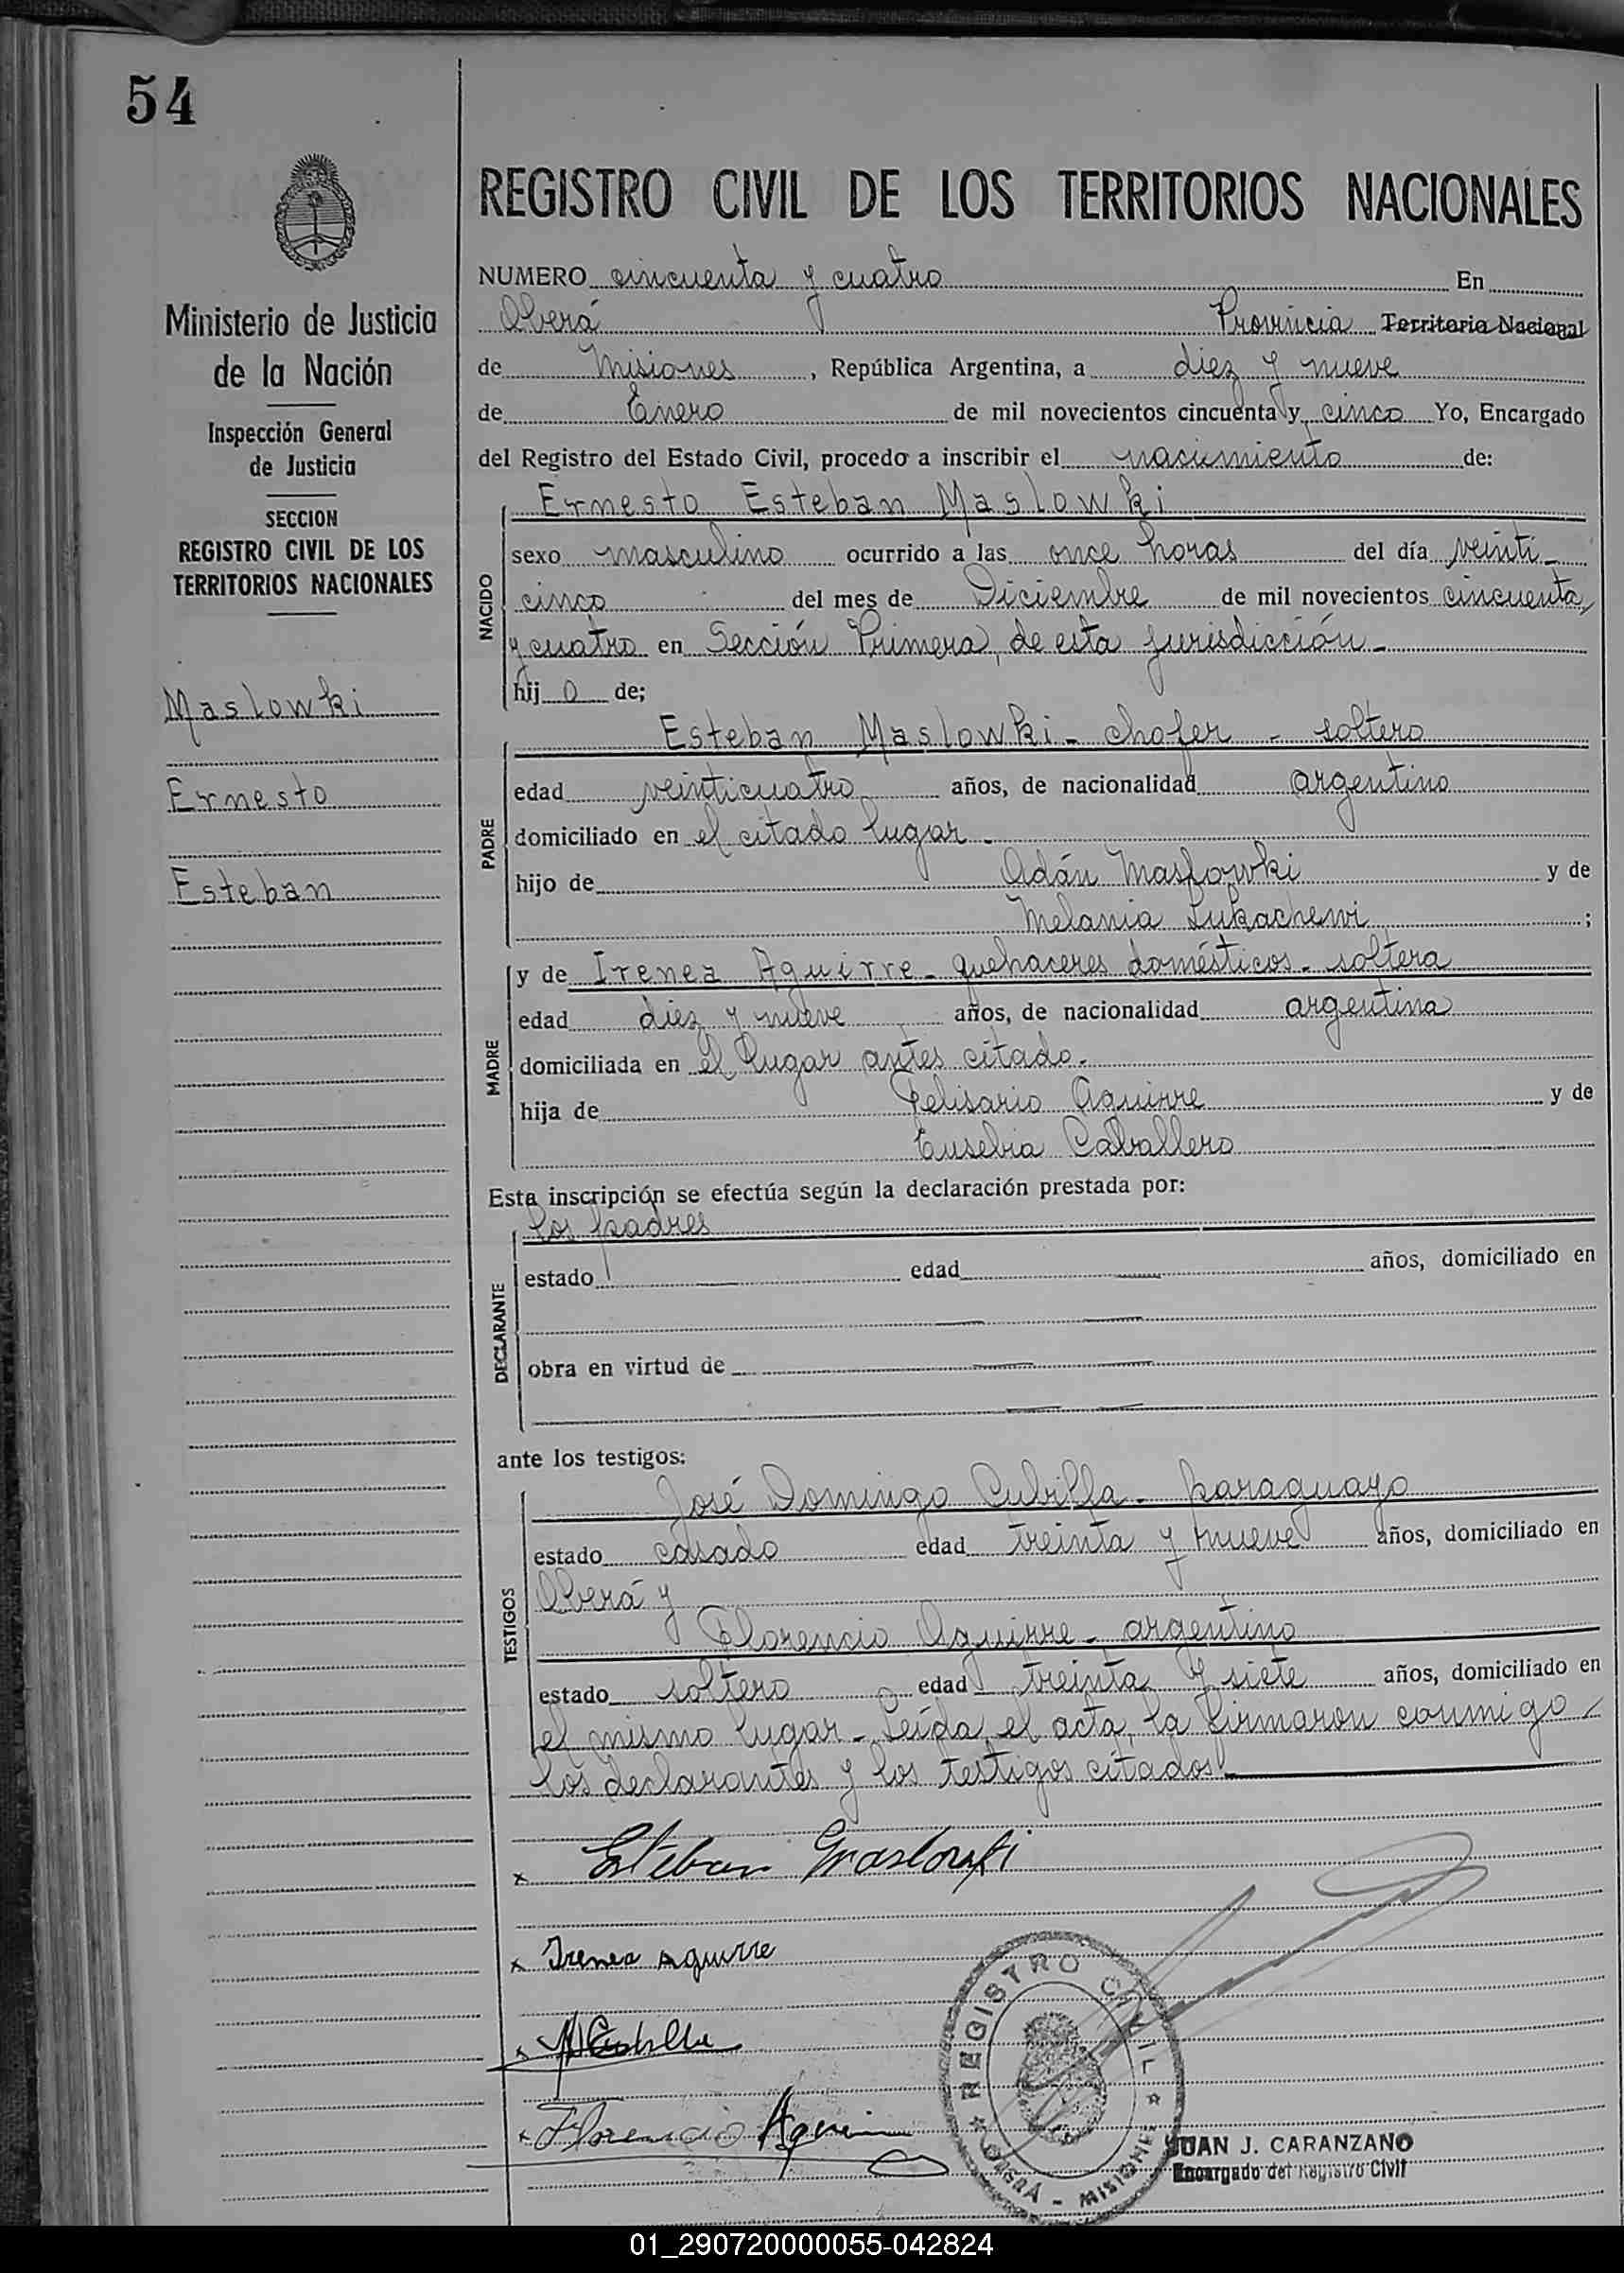 54
REGISTRO CIVIL DE LOS TERRITORIOS NACIONALES
Ministerio de Justicia
de la Nación
Inspección General
de Justicia
SECCION
REGISTRO CIVIL DE LOS
TERRITORIOS NACIONALES
Maslowki
Ernesto
Esteban
NUMERO cincuenta y cuatro En
Oberá Provincia Territorio Nacional
de Misiones, República Argentina, a diez y nueve
de Enero de mil novecientos cincuenta y cinco Yo, Encargado
del Registro del Estado Civil, procedo a inscribir el nacimiento de:
NACIDO
Ernesto Esteban Maslowki
sexo masculino ocurrido a las once horas del día veinti-
cinco del mes de Diciembre de mil novecientos cincuenta
y cuatro en Sección Primera, de esta jurisdicción.-
hijo de;
PADRE
Esteban Maslowki - chofer - soltero
edad veinticuatro años, de nacionalidad argentino
domiciliado en el citado lugar.
hijo de Adán Maslowki y de
Melania Lukachewi ;
MADRE
y de Irenea Aguirre - quehaceres domésticos - soltera
edad diez y nueve años, de nacionalidad argentina
domiciliada en el lugar antes citado.-
hija de Pelisario Aguirre y de
Eusebia Caballero
Esta inscripción se efectúa según la declaración prestada por:
DECLARANTE
los padres
estado edad años, domiciliado en
obra en virtud de
ante los testigos:
TESTIGOS
José Domingo Cubilla - paraguayo
estado casado edad treinta y nueve años, domiciliado en
Oberá y
Florencio Aguirre - argentino
estado soltero edad treinta y siete años, domiciliado en
el mismo lugar - Leída el acta, la firmaron conmigo
los declarantes y los testigos citados.-
x Esteban Maslowki
x Irenea Aguirre
x Cubilla
x Florencio Aguirre
REGISTRO CIVIL
OBERÁ - MISIONES
JUAN J. CARANZANO
Encargado del Registro Civil
01_290720000055-042824